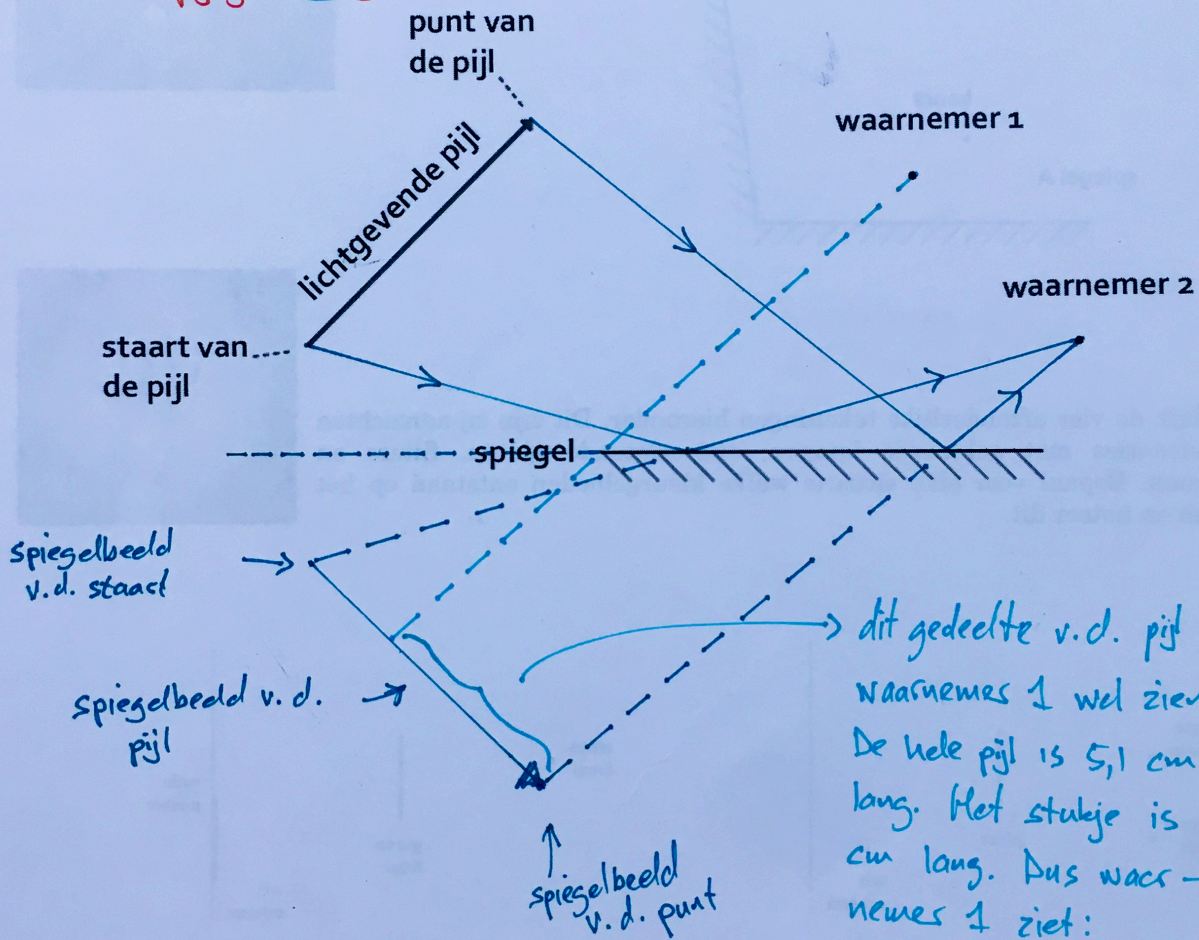 punt van
de pijl
waarnemer 1
lichtgevende pijl
waarnemer 2
staart van
de pijl
spiegel
spiegelbeeld
v.d. staart
spiegelbeeld v.d.
pijl
spiegelbeeld
v.d. punt
dit gedeelte v.d. pijl
waarnemer 1 wel
De hele pijl is 5,1 cm
lang. Het stukje is
cm lang. Dus waar-
nemer 1 ziet:
spiegel A